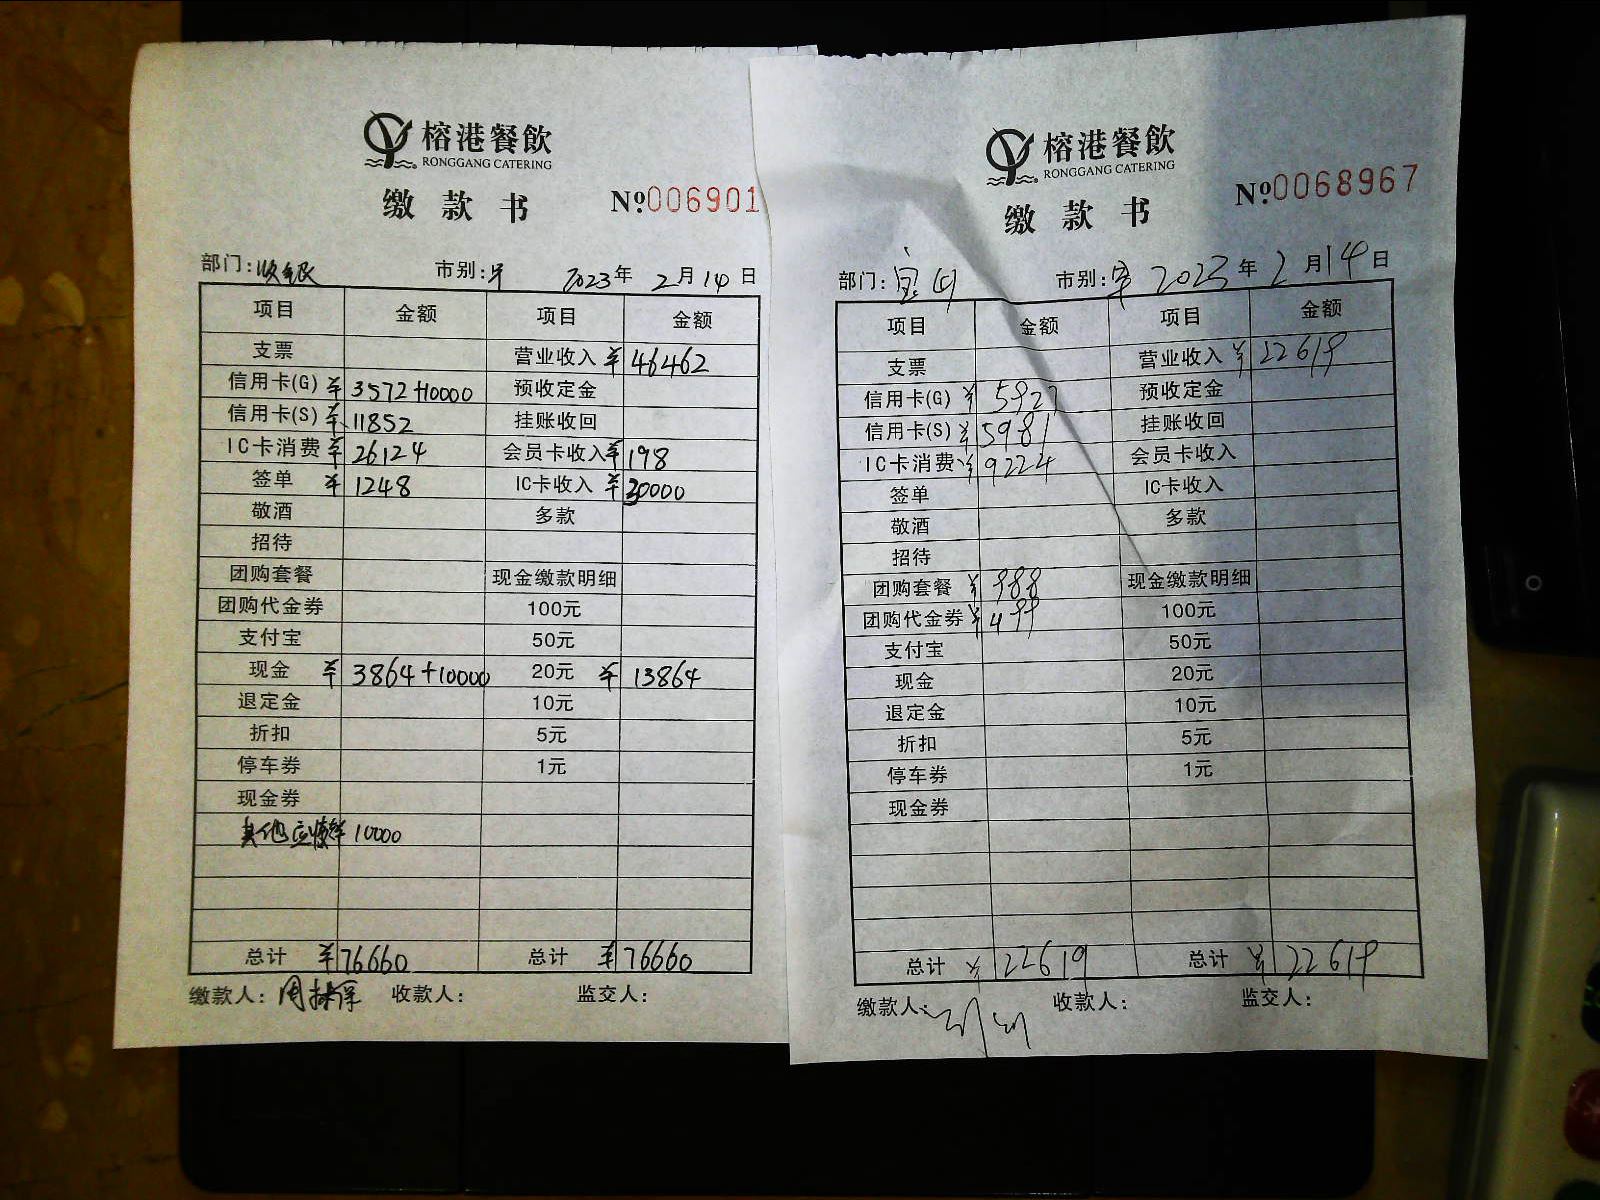 榕港餐飲
RONGGANG CATERING
缴款书 №006901
部门:收银 市别:早 2023年2月14日
项目 金额 项目 金额
支票 营业收入 ¥46462
信用卡(G) ¥3572+10000 预收定金
信用卡(S) ¥11852 挂账收回
IC卡消费 ¥26124 会员卡收入 ¥198
签单 ¥1248 IC卡收入 ¥30000
敬酒 多款
招待
团购套餐 现金缴款明细
团购代金券 100元
支付宝 50元
现金 ¥3864+10000 20元 ¥13864
退定金 10元
折扣 5元
停车券 1元
现金券
其他应 10000
总计 ¥76660 总计 ¥76660
缴款人: 收款人: 监交人:
榕港餐飲
RONGGANG CATERING
缴款书 №0068967
部门: 市别: 2023年2月14日
项目 金额 项目 金额
支票 营业收入 ¥22619
信用卡(G) ¥5927 预收定金
信用卡(S) ¥5981 挂账收回
IC卡消费 ¥9224 会员卡收入
签单 IC卡收入
敬酒 多款
招待
团购套餐 ¥988 现金缴款明细
团购代金券 ¥499 100元
支付宝 50元
现金 20元
退定金 10元
折扣 5元
停车券 1元
现金券
总计 ¥22619 总计 ¥22619
缴款人: 收款人: 监交人: